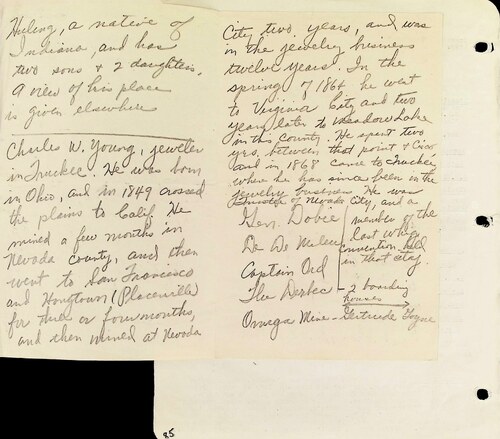 Huling, a native of
Indiana, and has
two sons & 2 daughters.
A view of his place
is given elsewhere
Charles W. Young, jeweler
in Truckee. He was born
in Ohio, and in 1849 crossed
the plains to Calif. He
mined a few months in
Nevada County, and then
went to San Francisco
and Hangtown (Placerville)
for three or four months,
and then mined at Nevada
City two years, and was
in the jewelry business
twelve years. In the
spring of 1864 he went
to Virginia City and two
years later to Meadow Lake
in this County. He spent two
yrs. between that point & Cisco
and in 1868 came to Truckee
where he has since been in the
jewelry business. He was
of Nevada City, and a
member of the
last Whig
convention held
in that city.
Gen. Dobie
De De
Captain Ord
The Derbec - 2 boarding
houses
Omega Mine - Gertrude Goyne
85